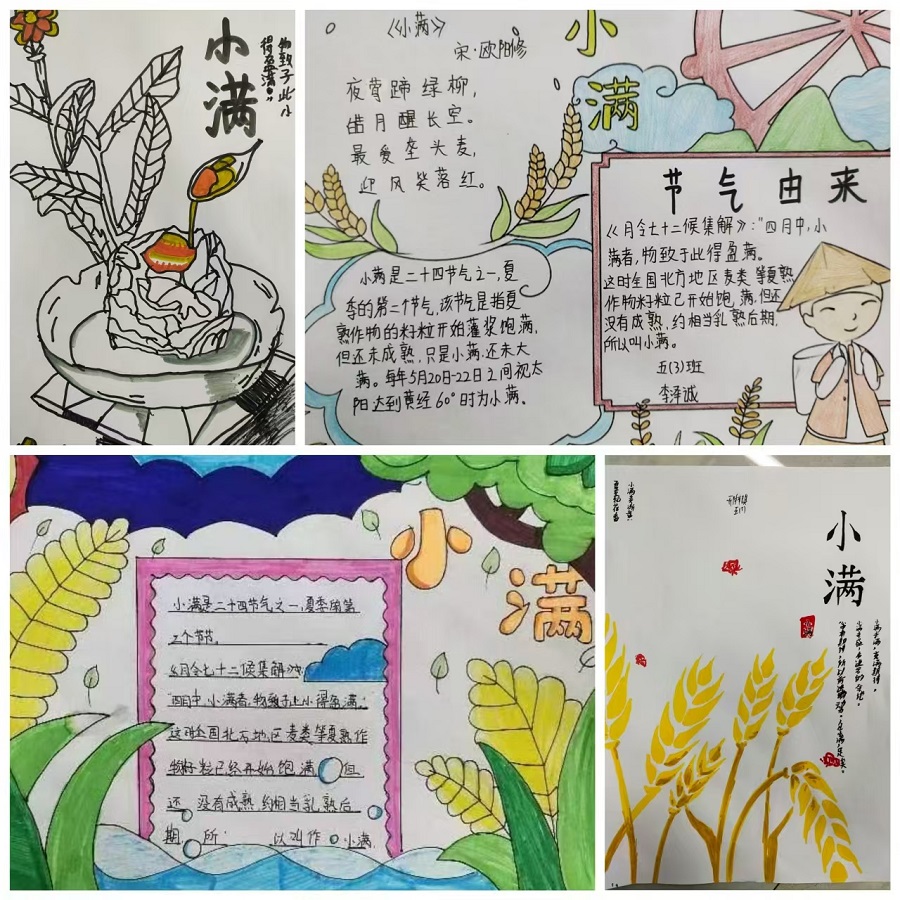 小满
物致于此小
得盈满。”
《小满》
宋·欧阳修
夜莺蹄绿柳，
皓月醒长空。
最爱垄头麦，
迎风笑落红。
小满
小满是二十四节气之一，夏
季的第二个节气，该节气是指夏
熟作物的籽粒开始灌浆饱满，
但还未成熟，只是小满，还未大
满。每年5月20日-22日之间视太
阳达到黄经60°时为小满。
节气由来
《月令七十二候集解》：“四月中，小
满者，物致于此得盈满。
这时全国北方地区麦类等夏熟
作物籽粒已开始饱满，但还
没有成熟，约相当乳熟后期，
所以叫小满。
五(3)班
李泽诚
小满
小满是二十四节气之一，夏季的第
二个节气。
《月令七十二候集解》
“四月中，小满者，物致于此小得盈满。”
这时全国北方地区麦类等夏熟作
物籽粒已经开始饱满 但
还 没有成熟 约相当乳熟后
期 所 以叫作 小满.
小满